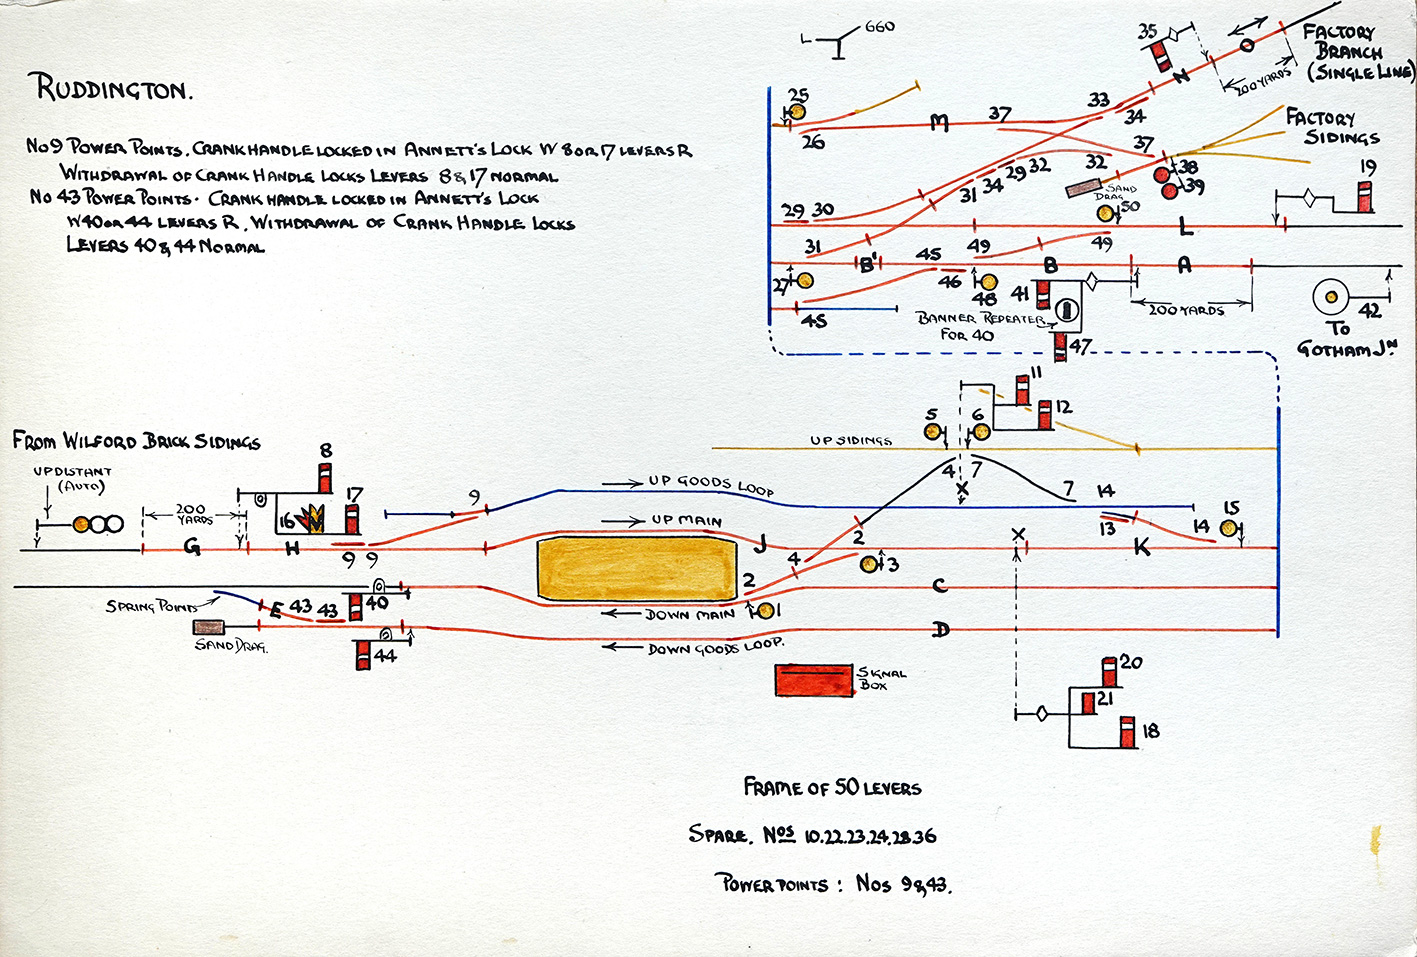 RUDDINGTON.
No 9 POWER POINTS. CRANK HANDLE LOCKED IN ANNETT'S LOCK W 8 OR 17 LEVERS R
WITHDRAWAL OF CRANK HANDLE LOCKS LEVERS 8 & 17 NORMAL
No 43 POWER POINTS. CRANK HANDLE LOCKED IN ANNETT'S LOCK
W 40 OR 44 LEVERS R. WITHDRAWAL OF CRANK HANDLE LOCKS
LEVERS 40 & 44 NORMAL
L 660
35
FACTORY
BRANCH
(SINGLE LINE)
O
N
200 YARDS
25
26
M
37
33
34
FACTORY
SIDINGS
37
38
39
19
32
32
29
34
31
SAND
DRAG
50
29 30
L
31
49
49
B'
45
B
A
27
46
48
41
200 YARDS
42
45
BANNER REPEATER
FOR 40
47
TO
GOTHAM JN
11
12
5
6
UP SIDINGS
4 7
X
7
14
13
14
15
K
FROM WILFORD BRICK SIDINGS
UP DISTANT
(AUTO)
200
YARDS
8
17
16
9
G
H
9 9
UP GOODS LOOP
UP MAIN
J
2
X
4
3
2
C
SPRING POINTS
E 43 43
40
DOWN MAIN
1
SAND DRAG.
44
DOWN GOODS LOOP.
D
SIGNAL
BOX
20
21
18
FRAME OF 50 LEVERS
SPARE. Nos 10.22.23.24.28.36
POWER POINTS : Nos 9 & 43.